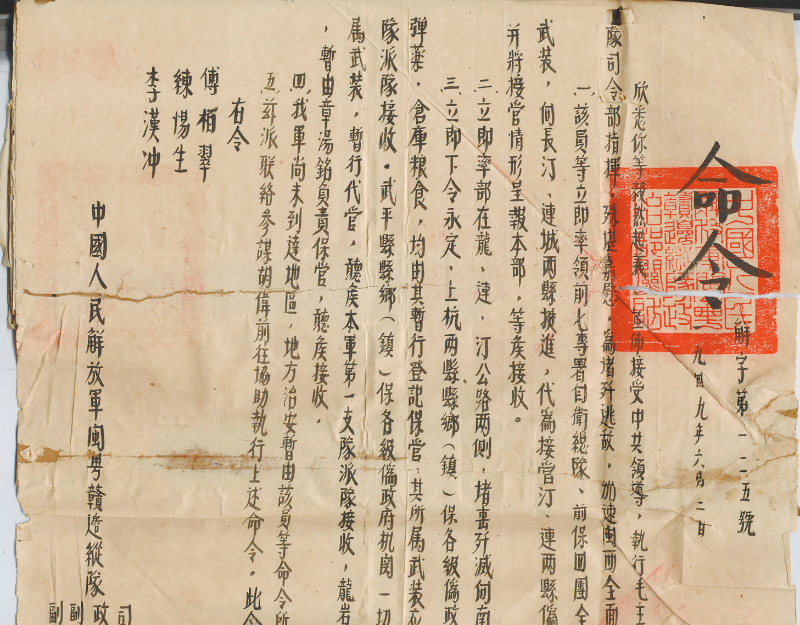 命令
解字第一二五號
一九四九年六月二日
欣悉你等毅然起義，宣佈接受中共領導，執行毛主
隊司令部指揮，殊堪嘉慰。為堵歼逃敵，加速闽西全面
一、該員等立即率領前七專署自衛總隊、前保四團全
武装，向長汀、連城兩縣挺進，代為接管汀、連两縣偽
并將接管情形呈報本部，等矦接收。
二、立即率部在龍、連、汀公路两側，堵击歼滅向南
三、立即下令永定、上杭两縣縣鄉（鎮）保各級偽政
彈葯，倉庫粮食，均由其暫行登記保管，其所属武装
隊派隊接收。武平縣縣鄉（鎮）保各級偽政府机関一切
属武装，暫行代管，聽矦本軍第一支隊派隊接收，龍岩
，暫由章湯銘負責保管，聽矦接收。
四、我軍尚未到達地區，地方治安暫由該員等命令所
五、茲派联絡參謀胡偉前往協助執行上述命令。此令
右令
傅柏翠
練惕生
李漢冲
中國人民解放軍闽粤贛邊縱隊
司
政
副
副